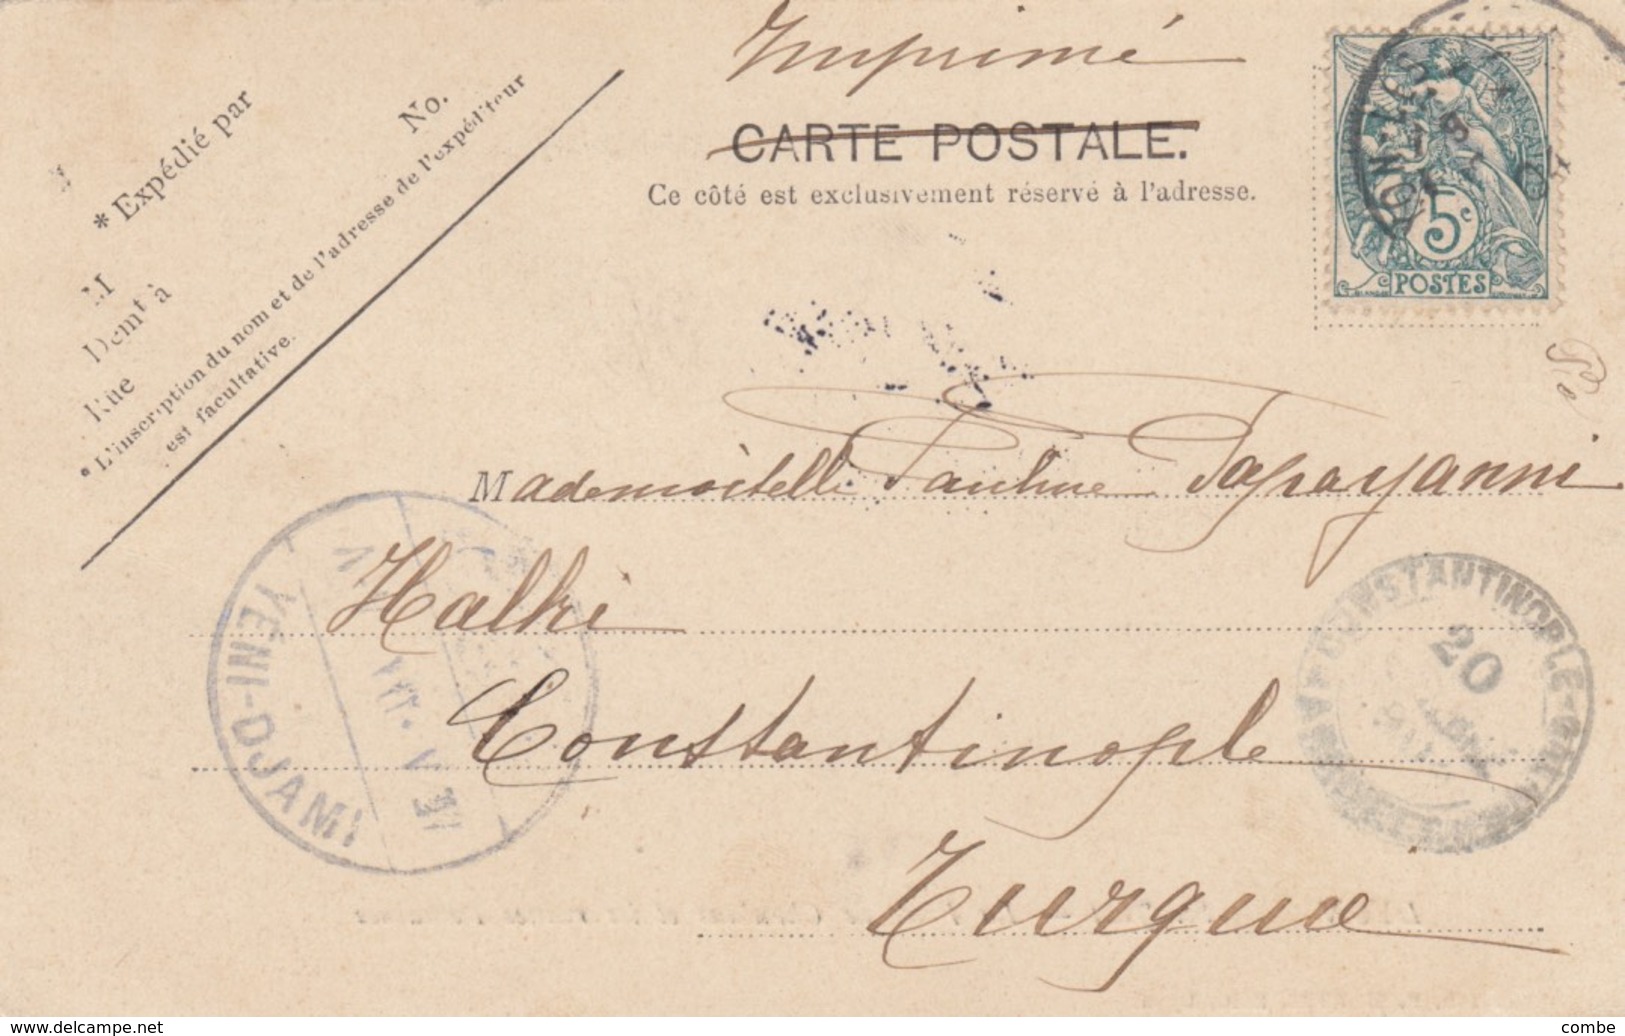 Imprimé
CARTE POSTALE.
Ce côté est exclusivement réservé à l'adresse.
* Expédié par
No.
M
Demt à
Rue
* L'inscription du nom et de l'adresse de l'expéditeur
est facultative.
5c
POSTES
Mademoiselle Pauline Papayanni
Halki
Constantinople
Turquie
YENI-DJAMI
CONSTANTINOPLE-GALATA
20
www.delcampe.net
combe